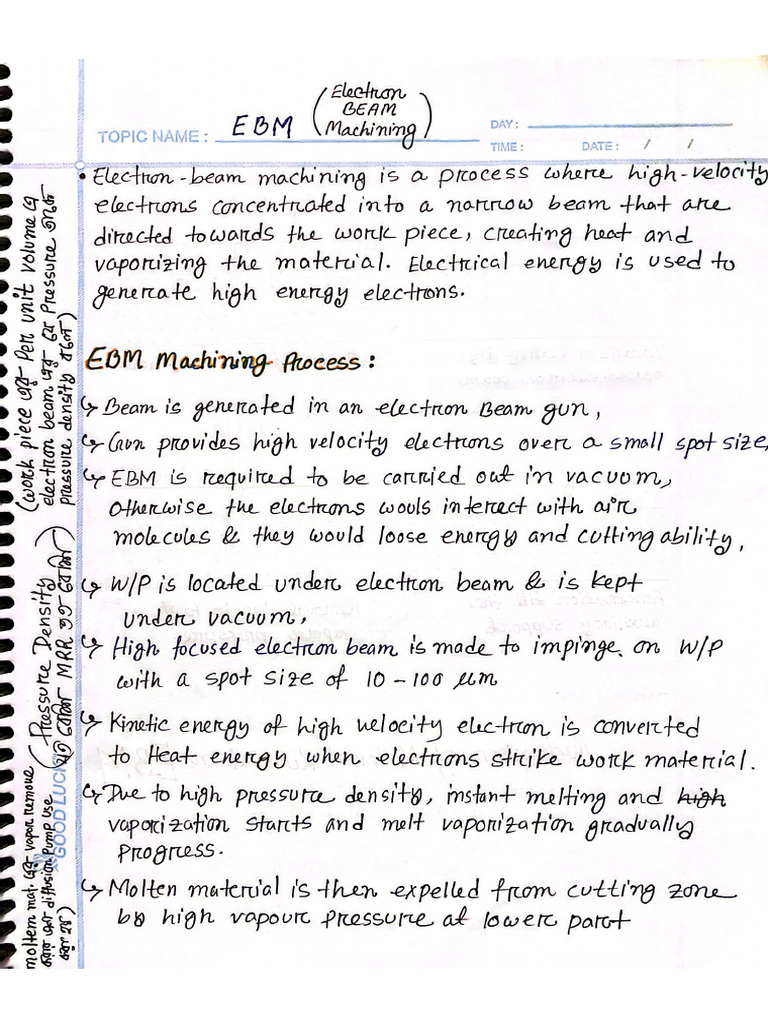 Electron
BEAM
Machining
TOPIC NAME : EBM ( )
DAY :
TIME : DATE : / /
• Electron-beam machining is a process where high-velocity
electrons concentrated into a narrow beam that are
directed towards the work piece, creating heat and
vaporizing the material. Electrical energy is used to
generate high energy electrons.
EBM Machining Process :
↳ Beam is generated in an electron Beam gun,
↳ Gun provides high velocity electrons over a small spot size,
↳ EBM is required to be carried out in vacuom,
Otherwise the electrons wouls interect with air
molecules & they would loose energy and cutting ability,
↳ W/P is located under electron beam & is kept
under vacuum,
↳ High focused electron beam is made to impinge on W/P
with a spot size of 10 - 100 μm
↳ Kinetic energy of high velocity electron is converted
to Heat energy when electrons strike work material.
↳ Due to high pressure density, instant melting and high
vaporization starts and melt vaporization gradually
progress.
↳ Molten material is then expelled from cutting zone
by high vapour pressure at lower part
(work piece এর Per unit volume এ
electron beam এর Pressure
pressure density বলে)
(Pressure Density
যত বেশি MRR তত বেশি)
GOOD LUCK
moltem mat. এর vapor remove
diffusion Pump use